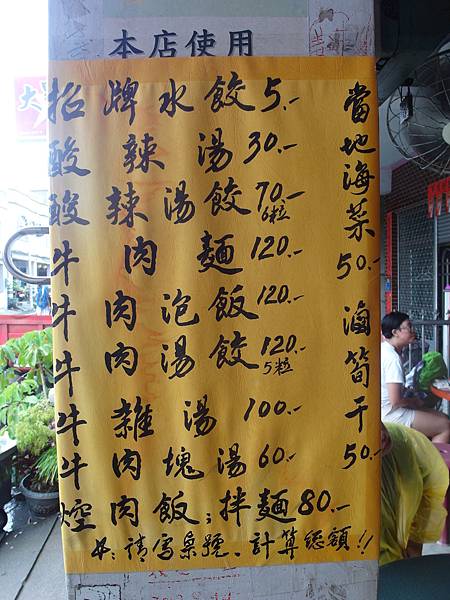 本店使用
招牌水餃5.-
酸辣湯30.-
酸辣湯餃70.-
6粒
牛肉麵120.-
牛肉泡飯120.-
牛肉湯餃120.-
5粒
牛雜湯100.-
牛肉塊湯60.-
焢肉飯;拌麵80.-
請寫桌號、計算總額!!
當地海菜50.-
滷筍干50.-
大